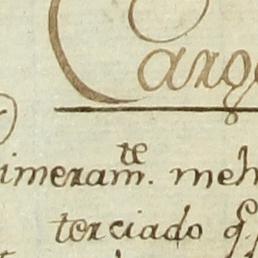 Carg
imeram.te meh
terciado q.